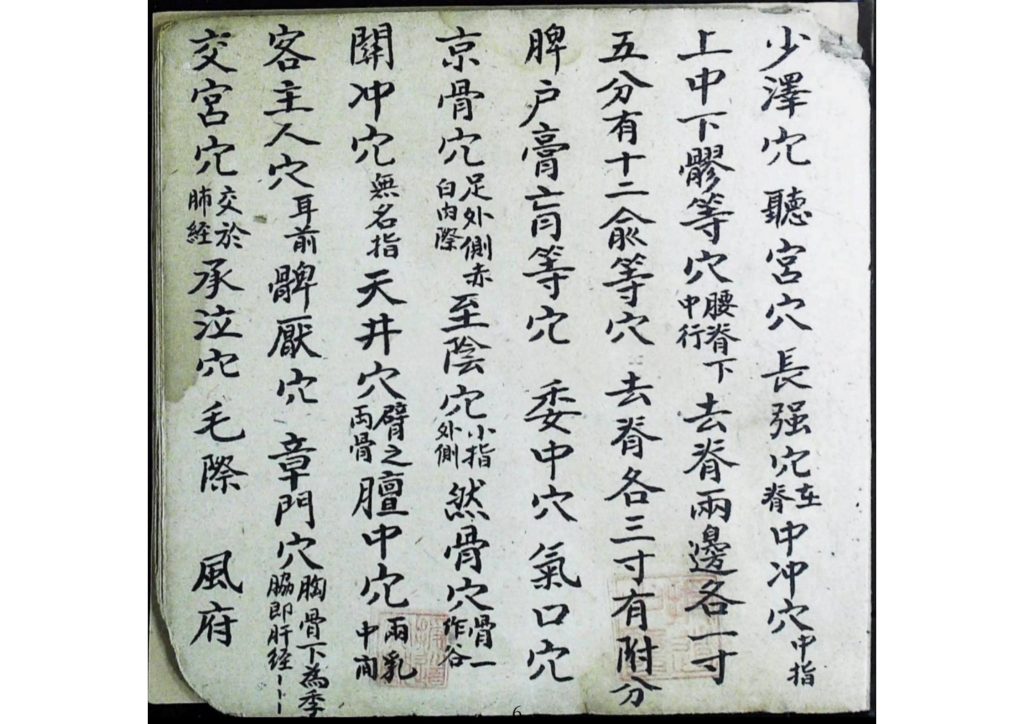 少澤穴 聽宮穴 長强穴在脊中冲穴中指
上中下髎等穴腰脊下中行去脊兩邊各一寸
五分有十二兪等穴 去脊各三寸有附分
脾户膏肓等穴 委中穴 氣口穴
京骨穴足外側赤白内際至陰穴小指外側然骨穴骨一作谷
關冲穴無名指天井穴臂之両骨膻中穴兩乳中間
客主人穴耳前髀厭穴 章門穴胸骨下為季脇即肝経
交宮穴交於肺経承泣穴毛際 風府
6